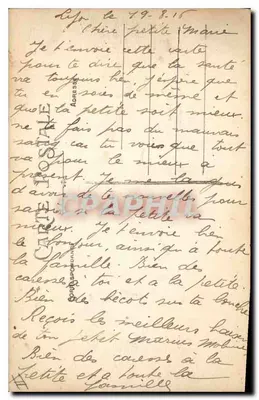 le 19-8-15
Chère petite Marie
Je t'envoie cette carte
pour te dire que la santé
va toujours bien j'espère que
tu en sois de même et
que la petite soit mieux
ne fais pas du mauvais
sang car vous que tout
va pour le mieux à
présent. Je me
d'avoir de nouvelles pour
si la petite va
mieux. Je t'envoie bien
le bonjour, ainsi qu'à toute
la famille. Bien des
caresses à toi et a la petite
Bien des bécots sur ta bouche
Reçois les meilleurs baisers
de ton petit Marius
Bien des caresses a la
petite et a toute la
famille
CARTE POSTALE
CORRESPONDANCE
ADRESSE
CPAPHIL